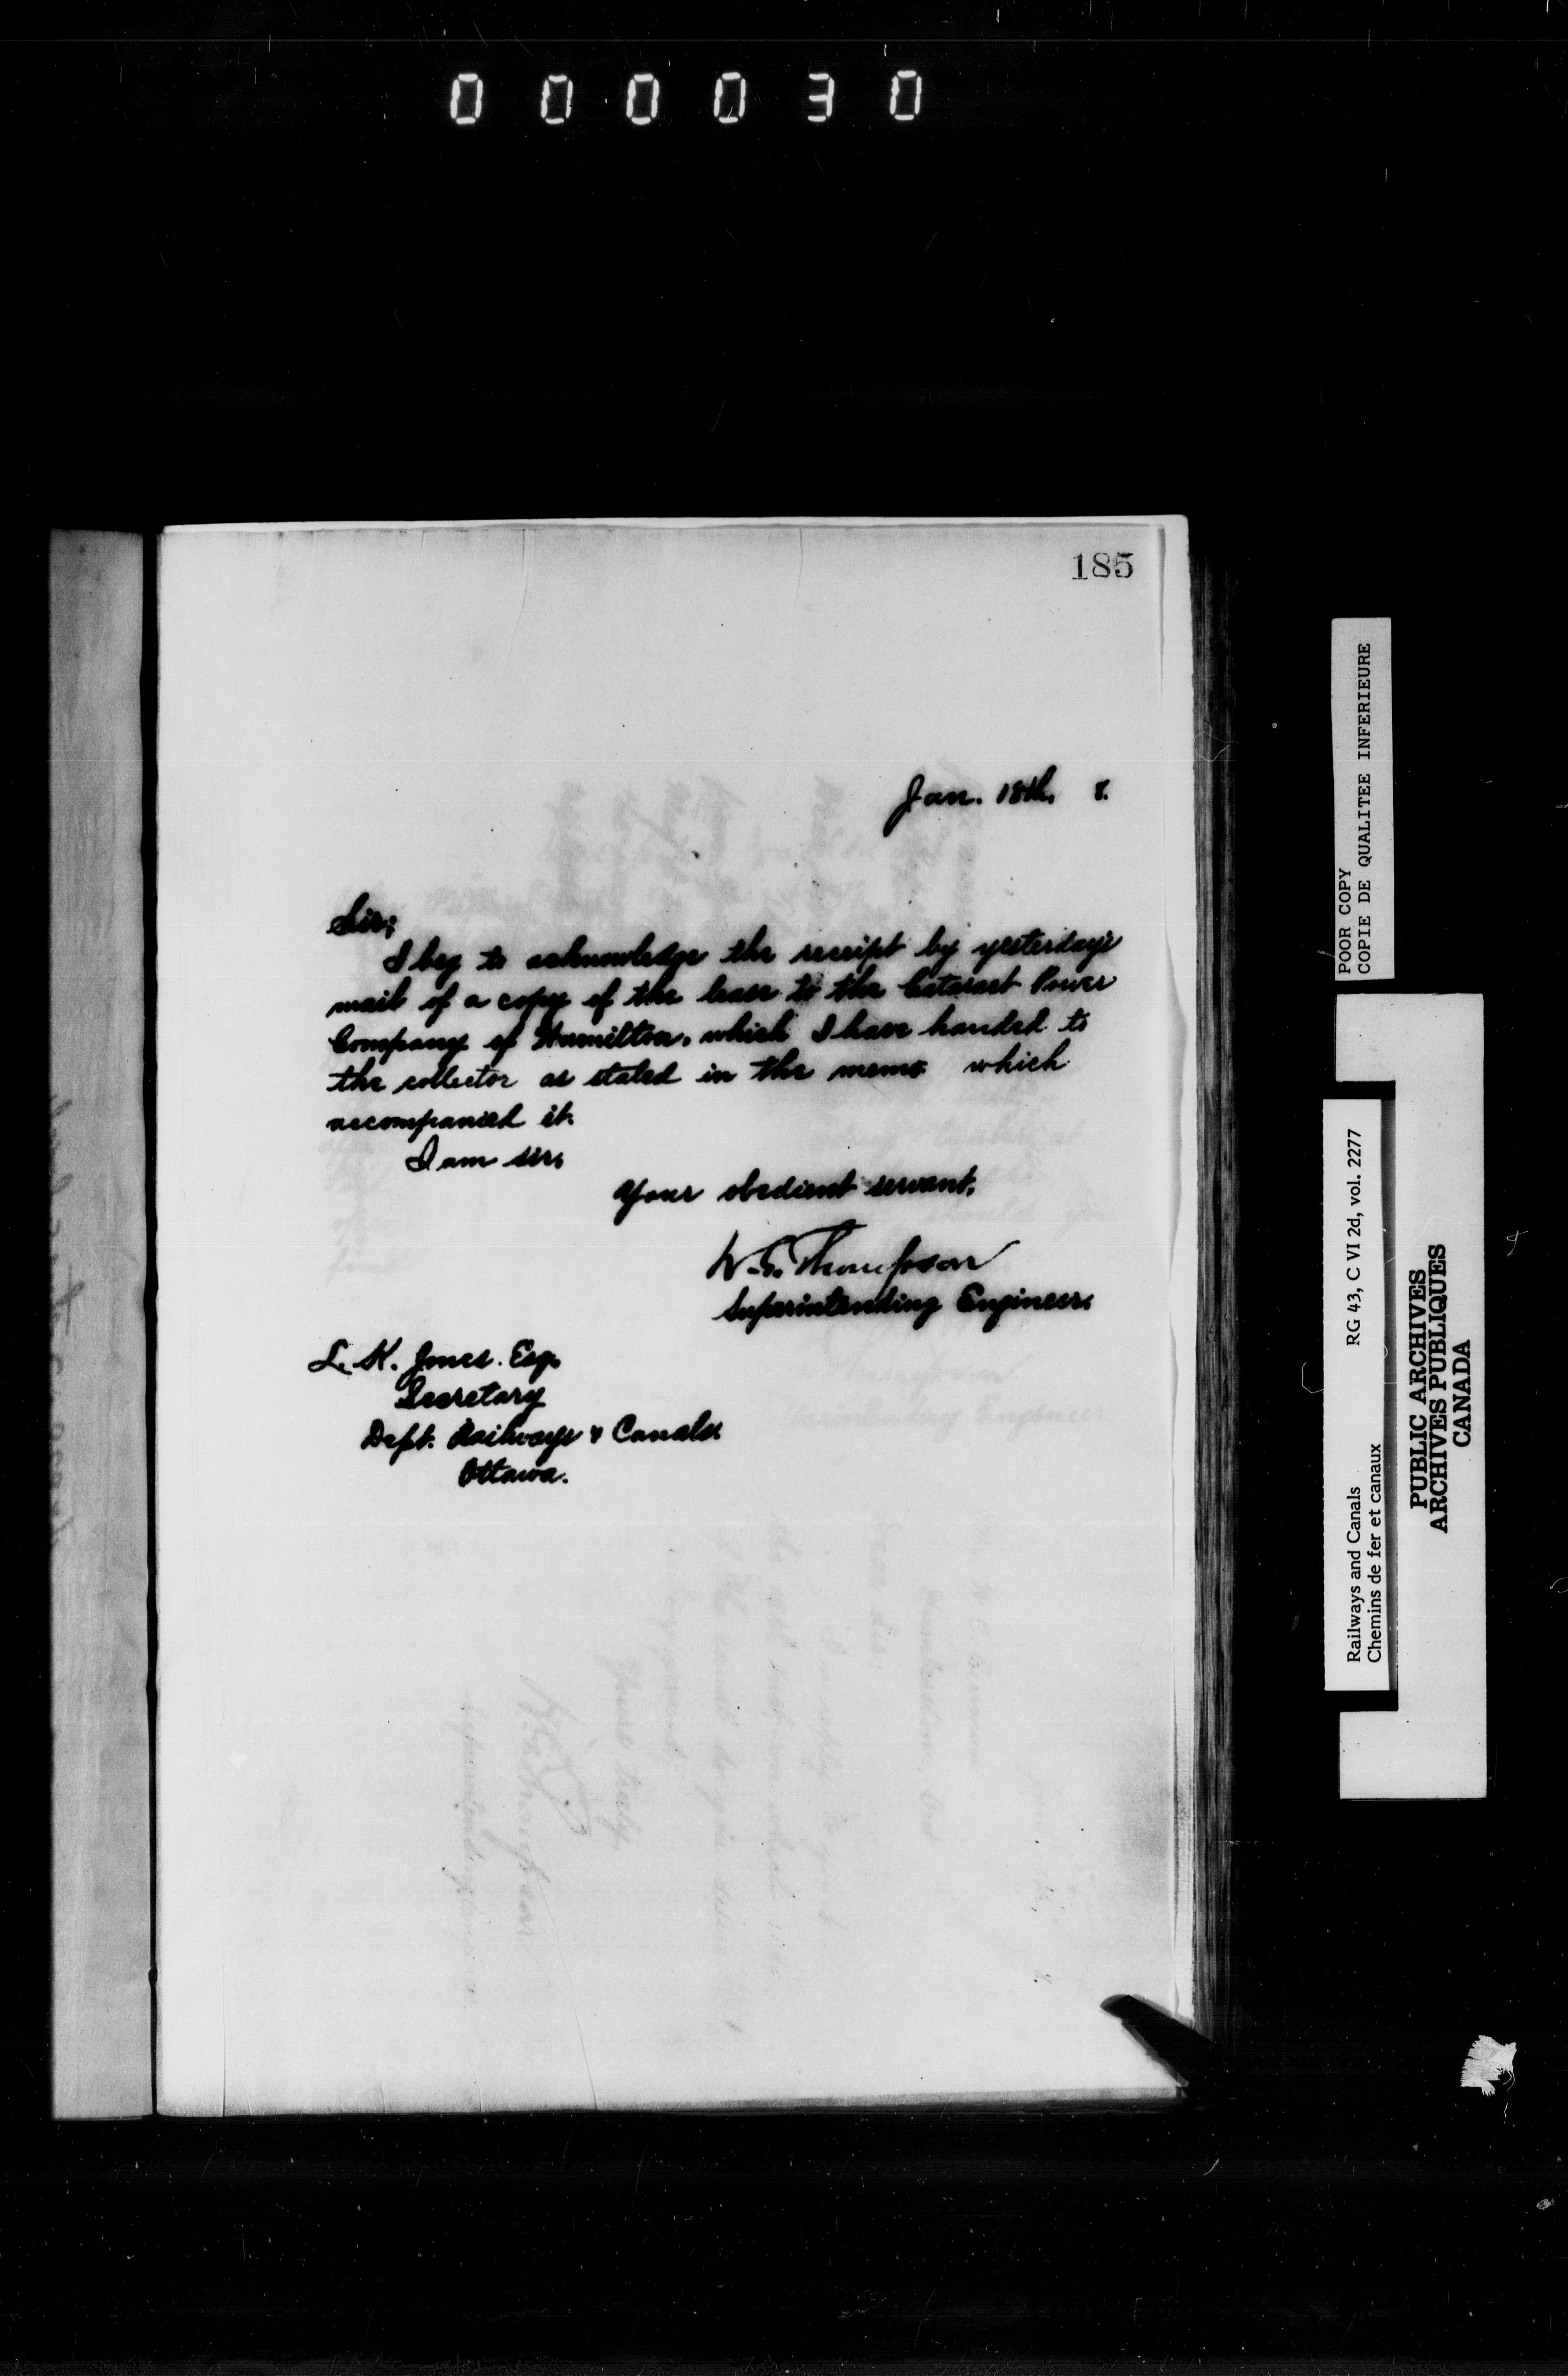 000030
185
Jan. 18th, 8.
Sir;
I beg to acknowledge the receipt by yesterday's
mail of a copy of the lease to the Cataract Power
Company of Hamilton, which I have handed to
the collector as stated in the memo. which
accompanied it.
I am sir,
Your obedient servant,
W. G. Thompson
Superintending Engineer.
L. K. Jones. Esq.
Secretary
Dept. Railways & Canals.
Ottawa.
POOR COPY
COPIE DE QUALITEE INFERIEURE
Railways and Canals RG 43, C VI 2d, vol. 2277
Chemins de fer et canaux
PUBLIC ARCHIVES
ARCHIVES PUBLIQUES
CANADA